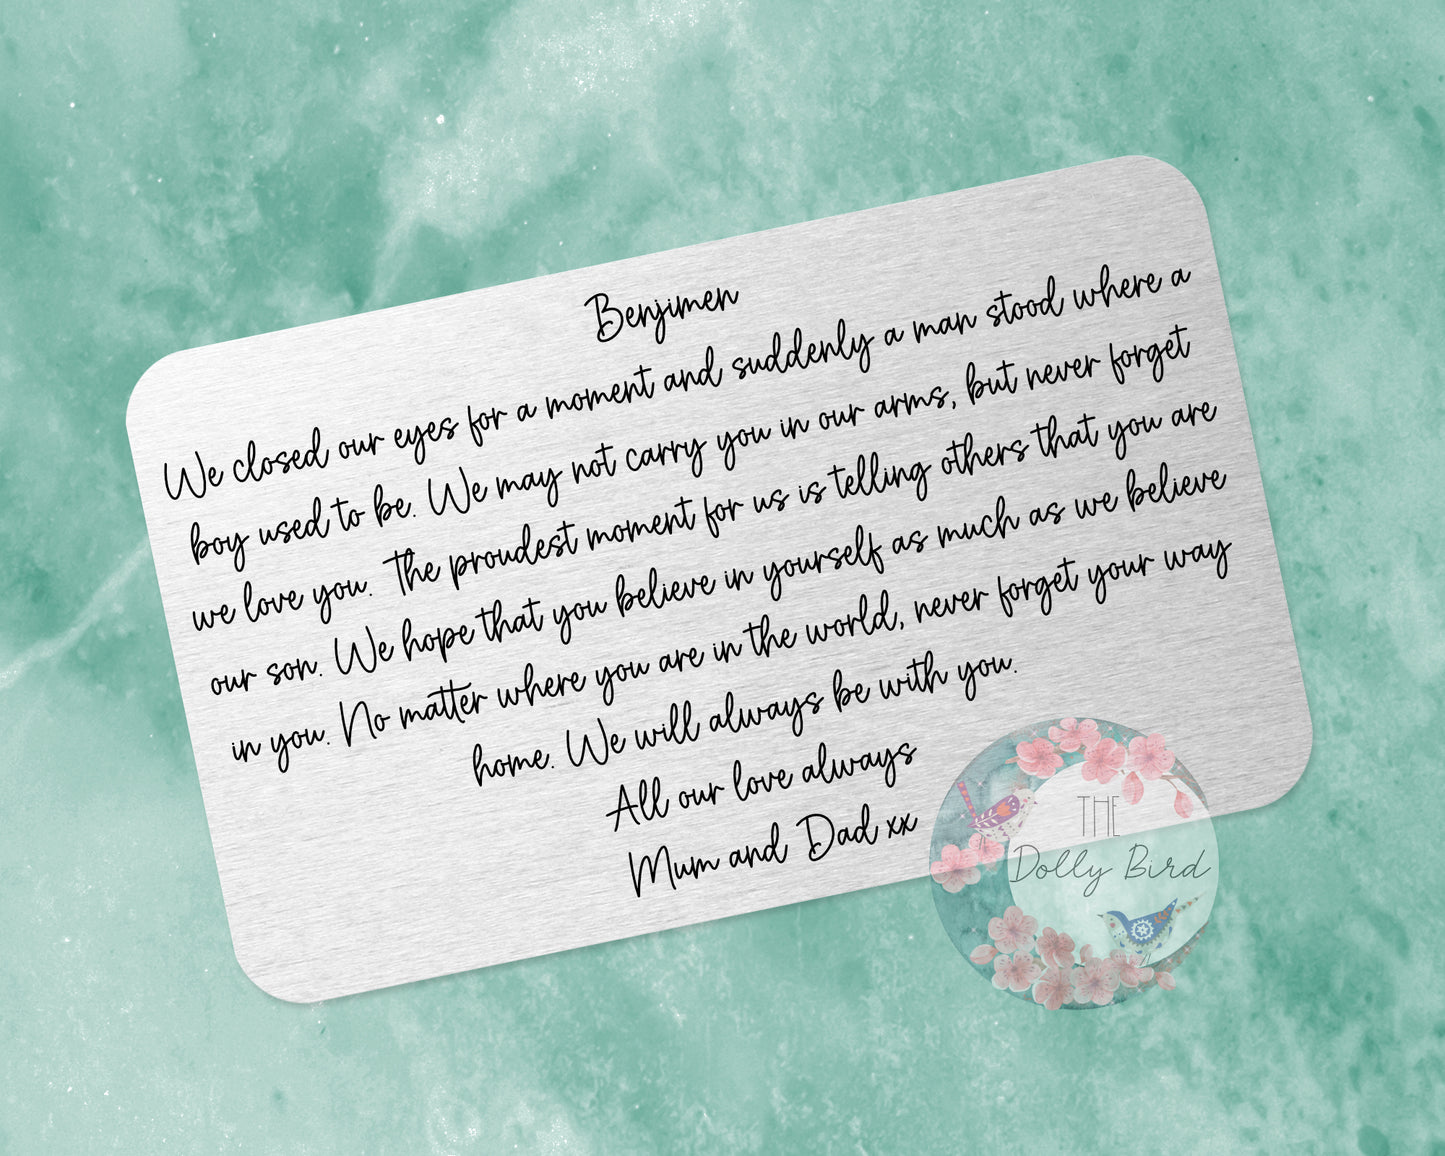 Benjimen
We closed our eyes for a moment and suddenly a man stood where a
boy used to be. We may not carry you in our arms, but never forget
we love you. The proudest moment for us is telling others that you are
our son. We hope that you believe in yourself as much as we believe
in you. No matter where you are in the world, never forget your way
home. We will always be with you.
All our love always
Mum and Dad xx
THE
Dolly Bird